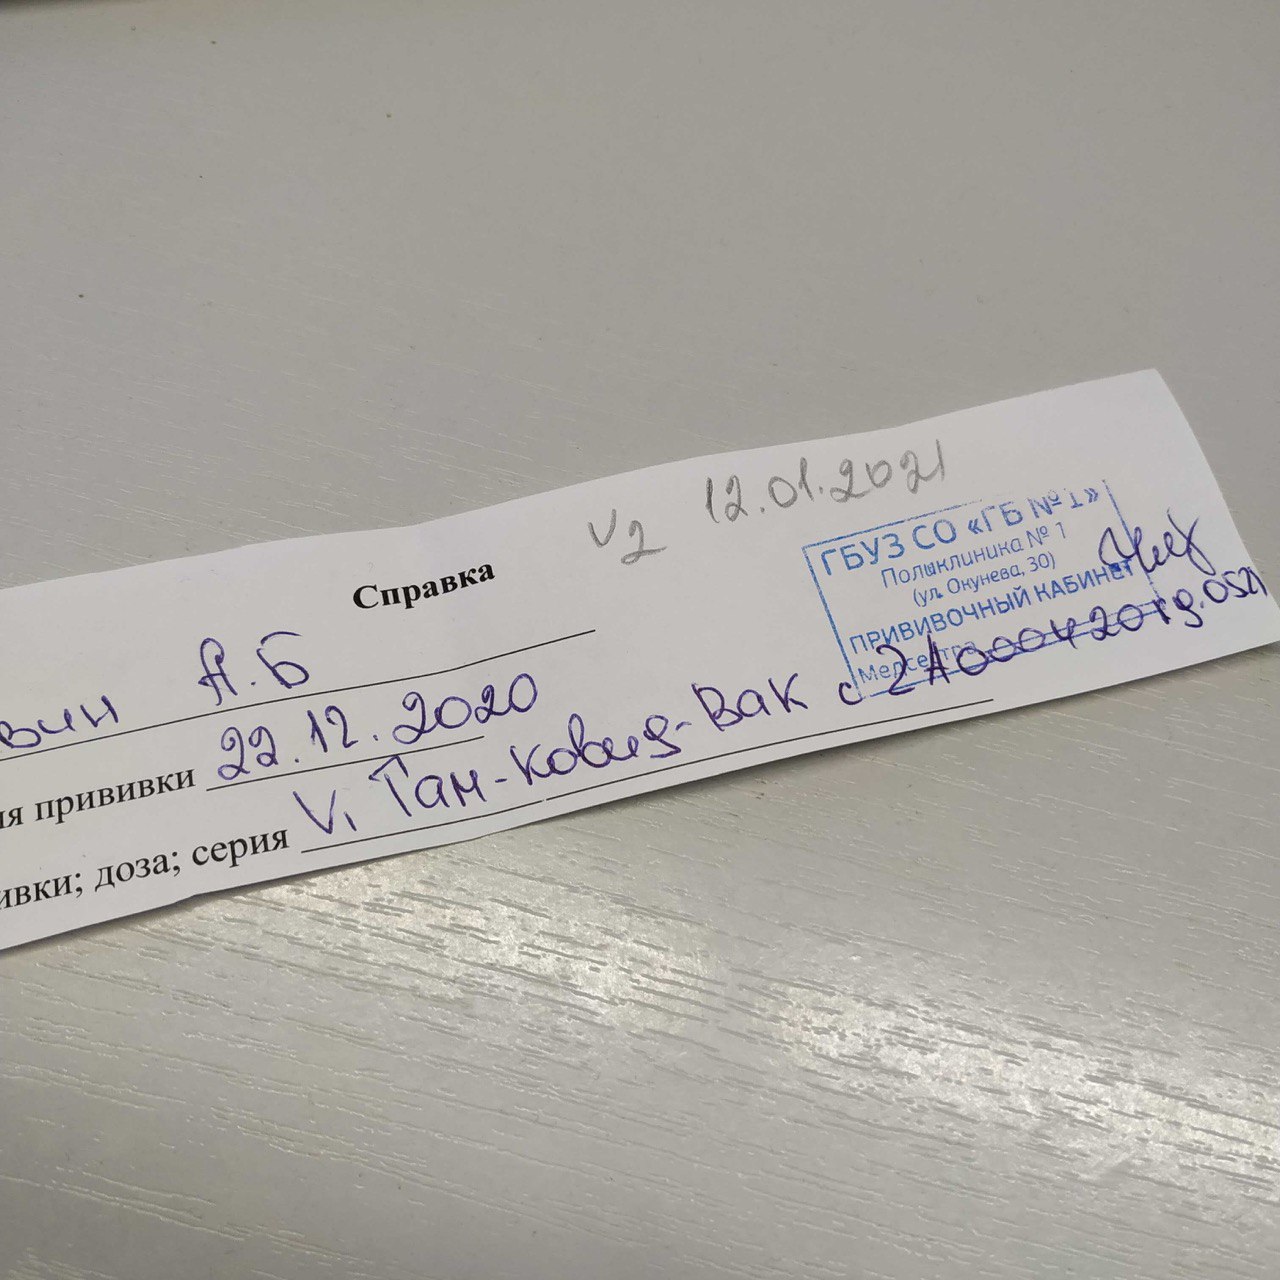 V2 12.01.2021
Справка
ГБУЗ СО «ГБ № 1»
Поликлиника № 1
(ул. Окунева, 30)
ПРИВИВОЧНЫЙ КАБИНЕТ
Медсестра
вин А.Б
ия прививки 22.12.2020
ивки; доза; серия V1 Гам-Ковид-Вак с 2А000420